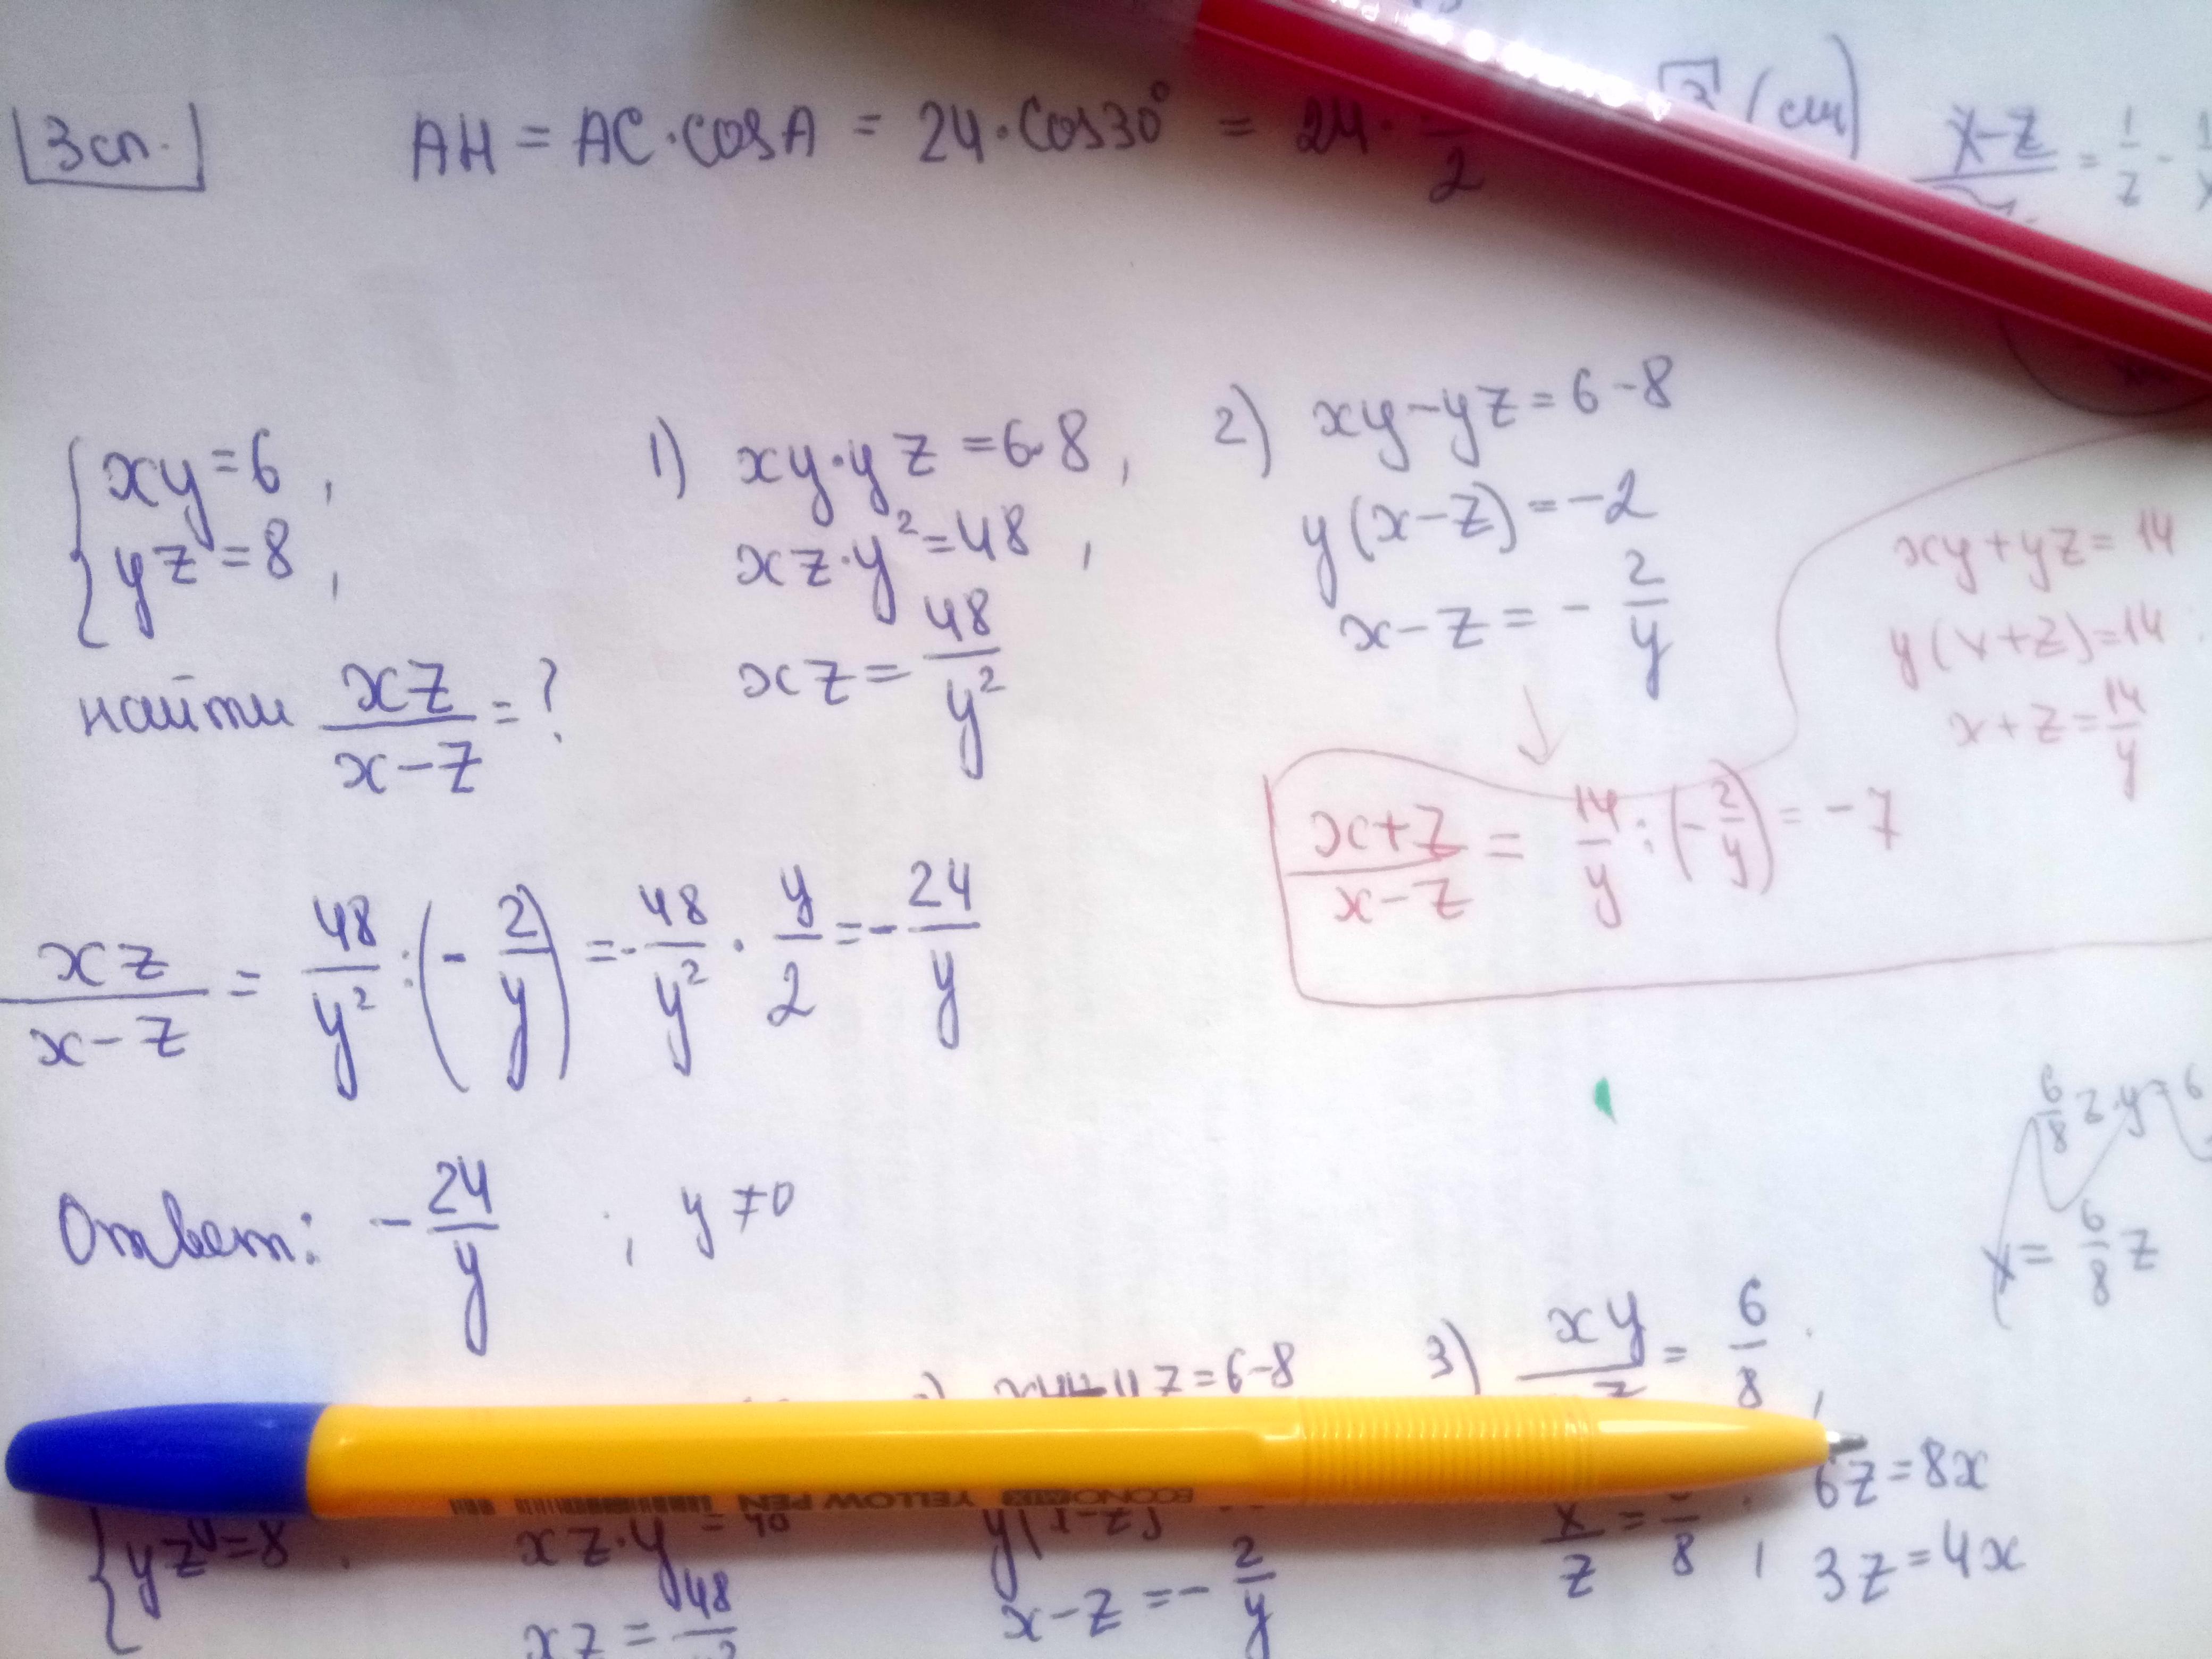 3 сп.
AH = AC·cosA = 24·cos30° = 24·
2
(см)
x-z = 1/z -
{ xy=6,
yz=8,
найти xz/(x-z) = ?
1) xy·yz=6·8,
xz·y²=48,
xz = 48/y²
2) xy-yz=6-8
y(x-z)=-2
x-z = - 2/y
xy+yz=14
y(x+z)=14
x+z=14/y
(x+z)/(x-z) = 14/y : (- 2/y) = -7
xz/(x-z) = 48/y² : (- 2/y) = - 48/y² · y/2 = - 24/y
Ответ: - 24/y ; y ≠ 0
6/8 z·y=6
x = 6/8 z
yz=6-8
3) xy/z = 6/8,
ECONOMIX YELLOW PEN
x/z = /8,
6z=8x
3z=4x
{ yz=8
xz·y
xz = 48
x-z = - 2/y